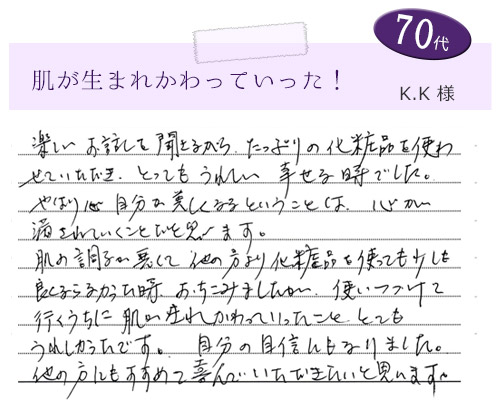 70代
肌が生まれかわっていった！
K.K 様
楽しいお話しを聞きながら、たっぷりの化粧品を使わ
せていただき、とってもうれしい 幸せな時でした。
やはり 自分が美しくなるということは、心が
満されていくことだと思います。
肌の調子が悪くて 他の方より化粧品を使っても少しも
良くならなかった時、おちこみましたが、使いつづけて
行くうちに 肌が生れかわっていったこと、とても
うれしかったです。 自分の自信にもなりました。
他の方にもすすめて喜んでいただきたいと思います。